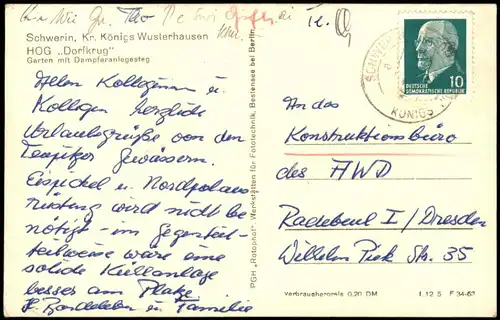 Schwerin, Kr. Königs Wusterhausen
HOG „Dorfkrug"
Garten mit Dampferanlegesteg
Allen Kolleginnen u.
Kollegen herzliche
Urlaubsgrüße von den
Teupitzer Gewässern.
Eispickel u. Nordpolaus
rüstung wird nicht be
nötigt - im Gegenteil -
teilweise wäre eine
solide Kühlanlage
besser am Platze
Familie
PGH „Rotophot" Werkstätten für Fototechnik, Bestensee bei Berlin
DEUTSCHE
DEMOKRATISCHE REPUBLIK
10
KÖNIGS
An das
Konstruktionsbüro
des AWD
Radebeul I / Dresden
Wilhelm Piek Str. 35
Verbraucherpreis 0,20 DM